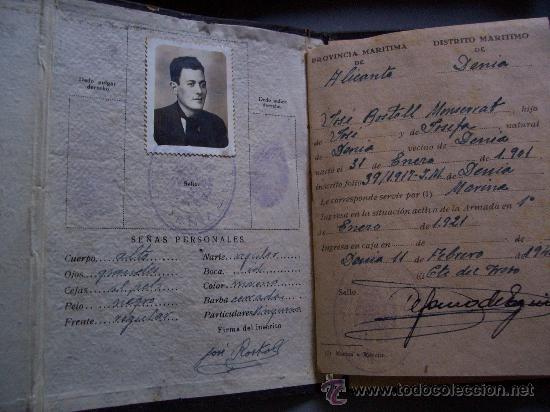 Dedo pulgar
derecho.
Dedo índice
derecho.
Sello:
SEÑAS PERSONALES
Cuerpo alto Nariz regular
Ojos Boca
Cejas al pelo Color moreno
Pelo negro Barba cerrada
Frente regular Particulares ninguna
Firma del inscrito
José Rostoll
PROVINCIA MARITIMA
DE
Alicante
DISTRITO MARITIMO
DE
Denia
José Rostoll Monserrat, hijo
de José y de Josefa natural
de Denia vecino de Denia
nació el 31 de Enero de 1.901
inscrito folio 39/1917-I.M. de Denia
Le corresponde servir por (1) Marina
Ingresa en la situación activa de la Armada en 1º
de Enero de 1.921
Ingresa en caja en
Denia 11 de Febrero de 19
El Cte del Trozo
Sello
(1) Marina o Ejército.
todocoleccion.net